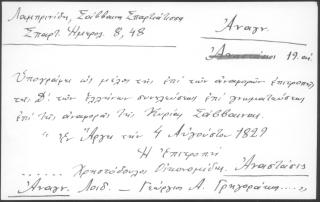 Λαμπρινίδη, Σάββαινα Σπαρτιάτισσα
Σπαρτ. Ημερολ. 8, 48
Αναγν.
19. αι.
Υπογράφει ως μέλος της επί των αναφορών επιτροπής
της Δ'. των ελλήνων συνελεύσεως επί γνωματεύσεως
επί της αναφοράς της Κυρίας Σάββαινας.
"Εν Άργει την 4 Αυγούστου 1829
Η Επιτροπή
...... Χριστόδουλος Οικονομίδης, Αναστάσις
Αναγν. Λοιδ. – Γεώργιος Α. Γρηγοράκη......"